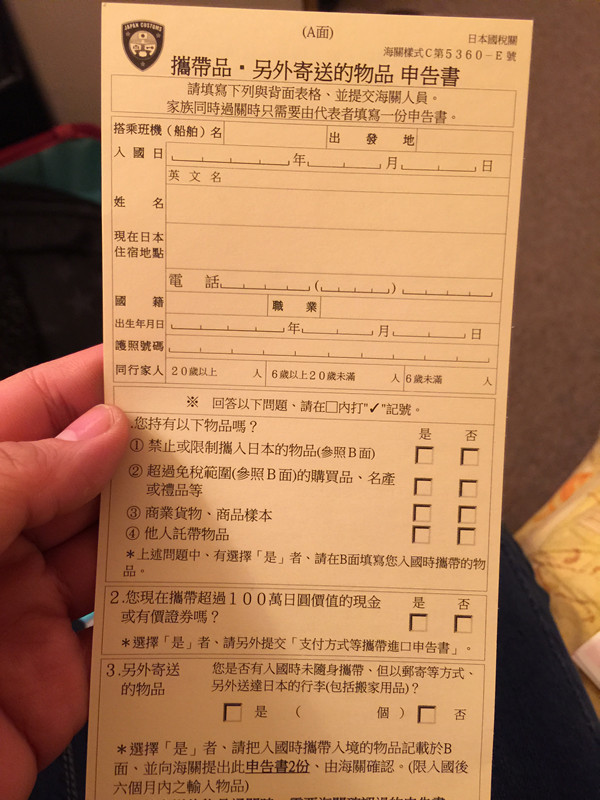 JAPAN CUSTOMS
(A面)
日本國稅關
海關樣式C第5360-E號
攜帶品・另外寄送的物品 申告書
請填寫下列與背面表格、並提交海關人員。
家族同時過關時只需要由代表者填寫一份申告書。
搭乘班機(船舶)名 出發地
入國日 年 月 日
英文名
姓名
現在日本
住宿地點
電話 ( )
國籍 職業
出生年月日 年 月 日
護照號碼
同行家人 20歲以上 人 6歲以上20歲未滿 人 6歲未滿 人
※ 回答以下問題、請在□內打"✓"記號。
.您持有以下物品嗎? 是 否
① 禁止或限制攜入日本的物品(參照B面)
② 超過免稅範圍(參照B面)的購買品、名產
或禮品等
③ 商業貨物、商品樣本
④ 他人託帶物品
*上述問題中、有選擇「是」者、請在B面填寫您入國時攜帶的物
品。
2.您現在攜帶超過100萬日圓價值的現金 是 否
或有價證券嗎?
*選擇「是」者、請另外提交「支付方式等攜帶進口申告書」。
3.另外寄送 您是否有入國時未隨身攜帶、但以郵寄等方式、
的物品 另外送達日本的行李(包括搬家用品)?
□ 是 ( 個 ) □ 否
*選擇「是」者、請把入國時攜帶入境的物品記載於B
面、並向海關提出此申告書2份、由海關確認。(限入國後
六個月內之輸入物品)